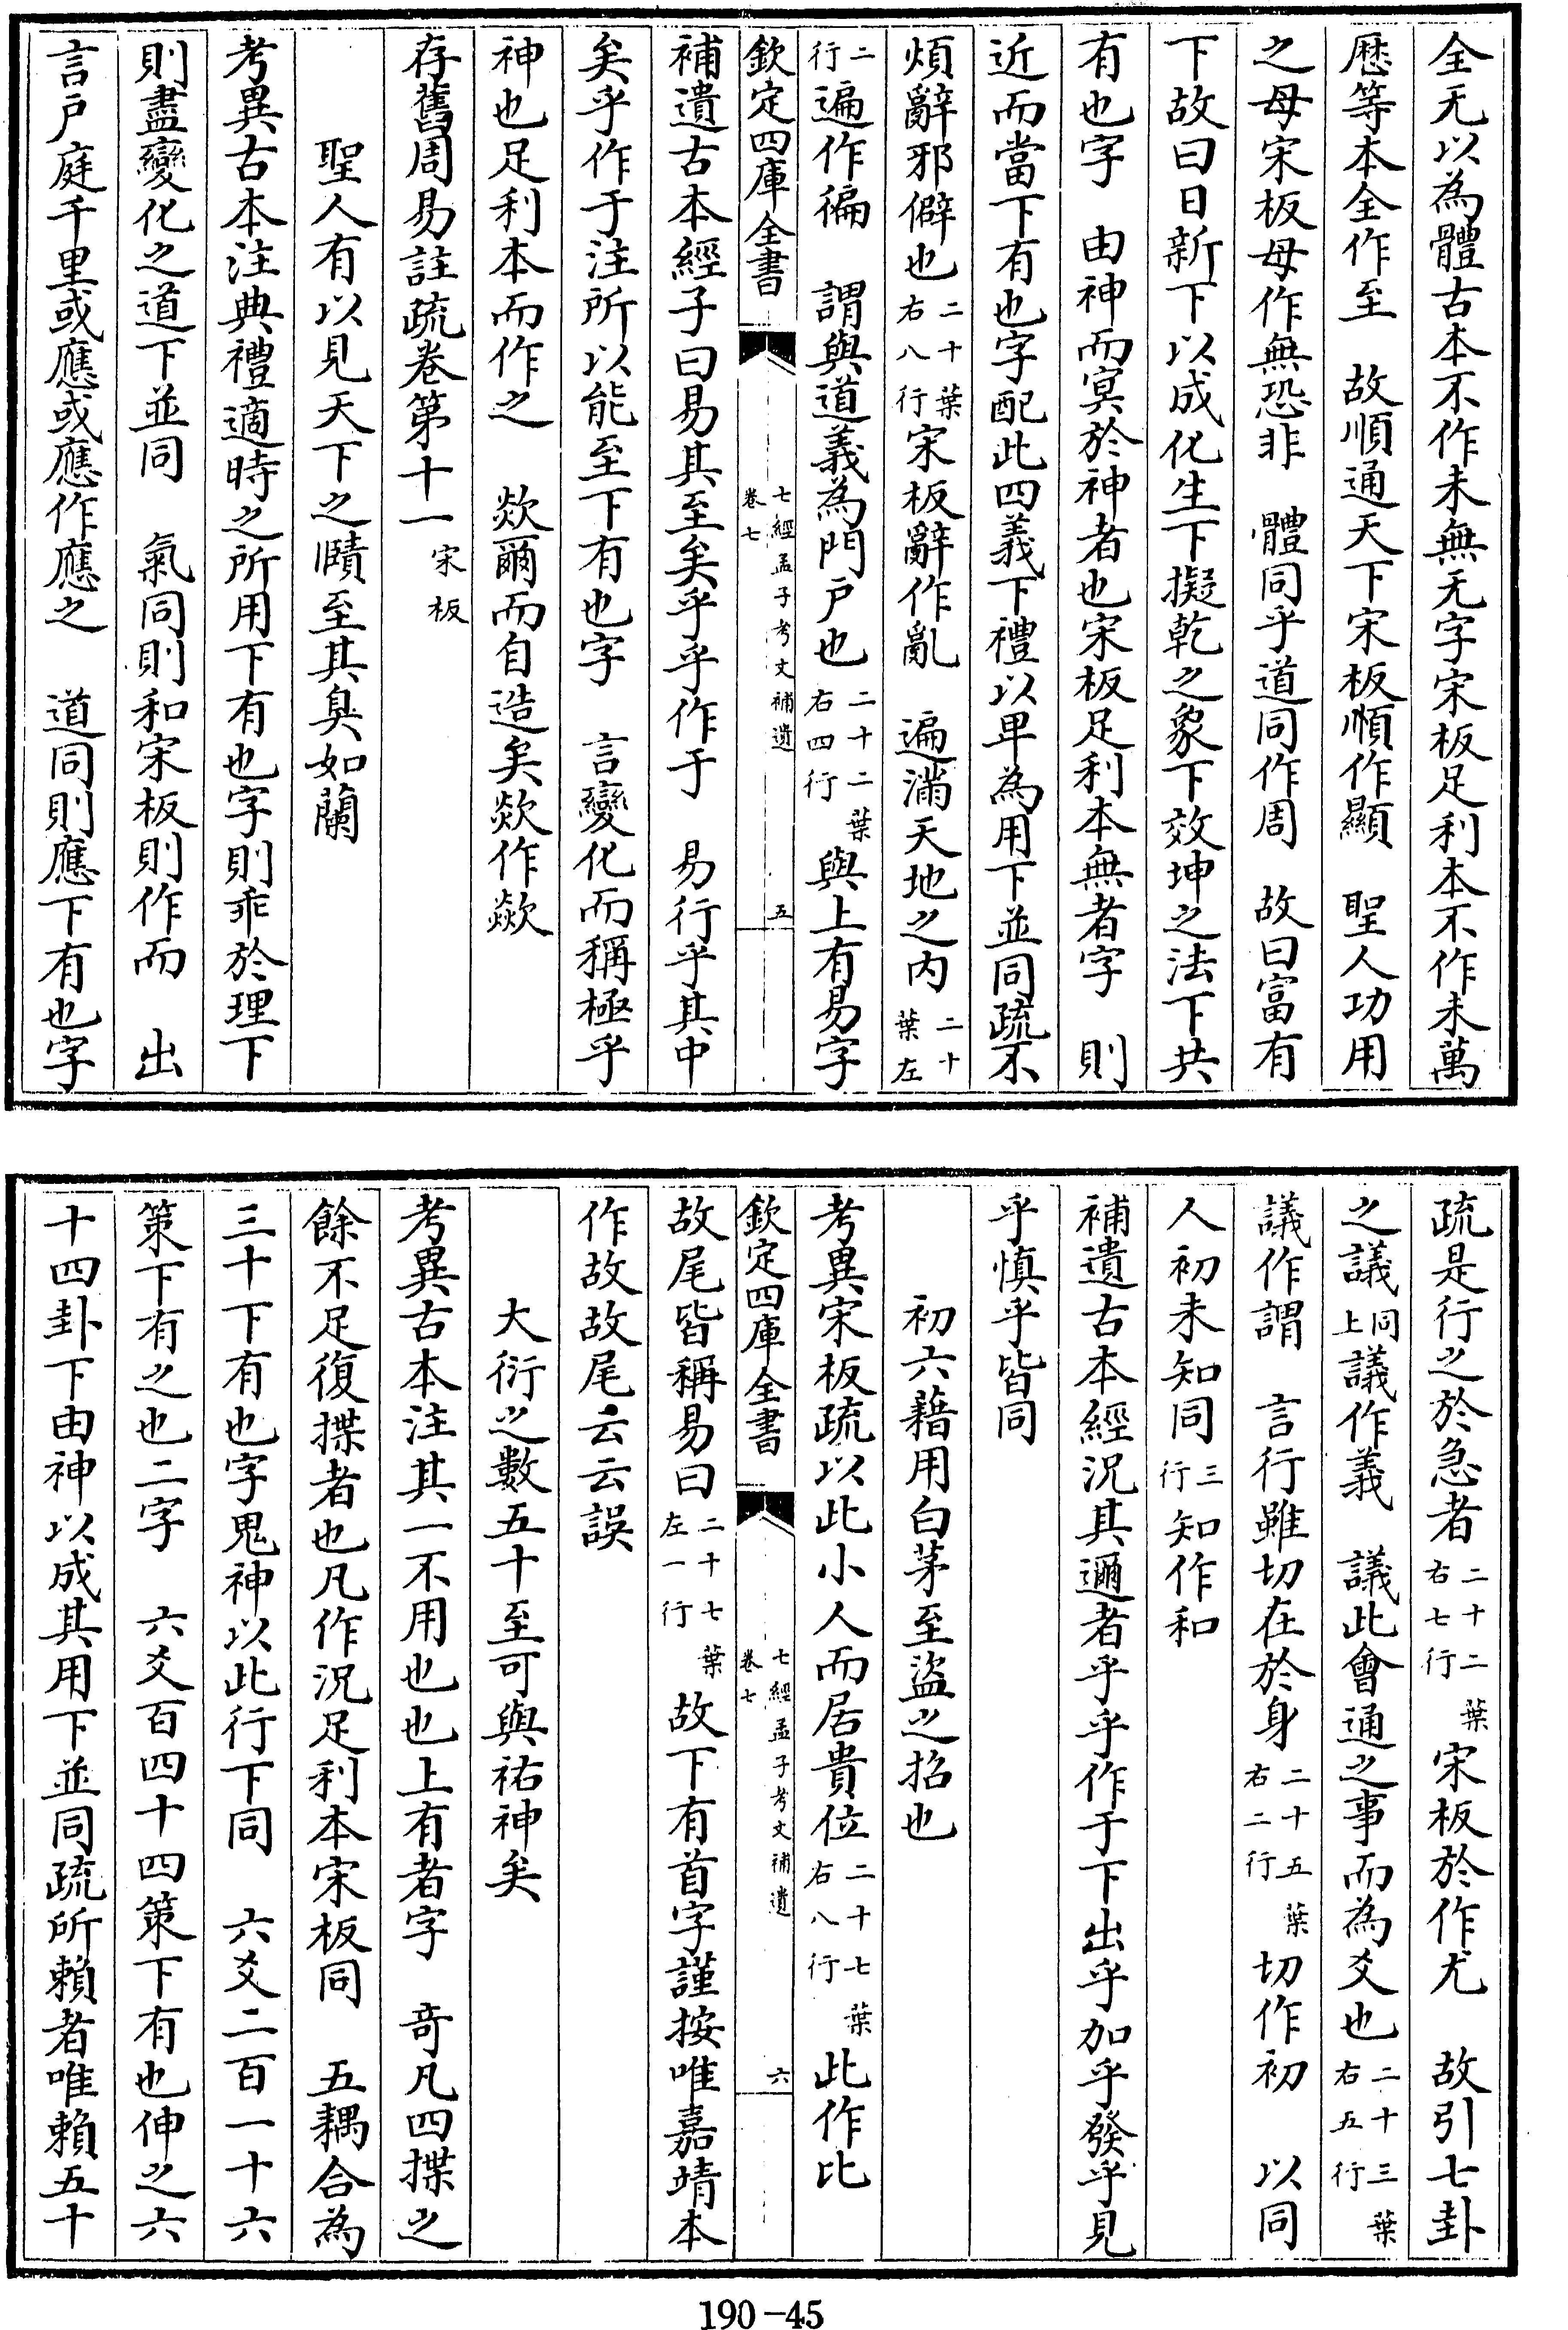 全无以為體古本不作未無无字宋板足利本不作未萬
歴等本全作至　故順通天下宋板順作顯　聖人功用
之母宋板母作無恐非　體同乎道同作周　故曰富有
下故曰日新下以成化生下擬乾之象下效坤之法下共
有也字　由神而冥於神者也宋板足利本無者字　則
近而當下有也字配此四義下禮以卑為用下並同疏不
煩辭邪僻也二十葉右八行宋板辭作亂　遍滿天地之内二十葉左
二行遍作徧　謂與道義為門户也二十二葉右四行與上有易字
欽定四庫全書　七經孟子考文補遺卷七　五
補遺古本經子曰易其至矣乎乎作于　易行乎其中
矣乎作于注所以能至下有也字　言變化而稱極乎
神也足利本而作之　欻爾而自造矣欻作歘
存舊周易註疏卷第十一宋板
聖人有以見天下之賾至其臭如蘭
考異古本注典禮適時之所用下有也字則乖於理下
則盡變化之道下並同　氣同則和宋板則作而　出
言户庭千里或應或應作應之　道同則應下有也字
疏是行之於急者二十二葉右七行宋板於作尤　故引七卦
之議同上議作義　議此會通之事而為爻也二十三葉右五行
議作謂　言行雖切在於身二十五葉右二行切作初　以同
人初未知同三行知作和
補遺古本經況其邇者乎乎作于下出乎加乎發乎見
乎慎乎皆同
初六藉用白茅至盜之招也
考異宋板疏以此小人而居貴位二十七葉右八行此作比
欽定四庫全書　七經孟子考文補遺卷七　六
故尾皆稱易曰二十七葉左一行故下有首字謹按唯嘉靖本
作故故尾云云誤
大衍之數五十至可與祐神矣
考異古本注其一不用也也上有者字　奇凡四揲之
餘不足復揲者也凡作況足利本宋板同　五耦合為
三十下有也字鬼神以此行下同　六爻二百一十六
策下有之也二字　六爻百四十四策下有也伸之六
十四卦下由神以成其用下並同疏所賴者唯賴五十
190-45